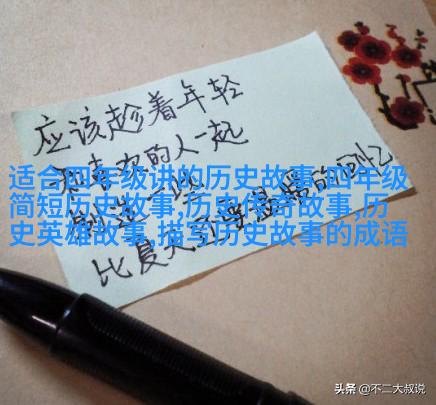 应该趁着年轻
和喜欢的人一起
制造一些
比夏天还要温暖的回忆
适合四年级讲的历史故事,四年级
简短历史故事,历史传奇故事,历
史英雄故事,描写历史故事的成语
头条 @不二大叔说